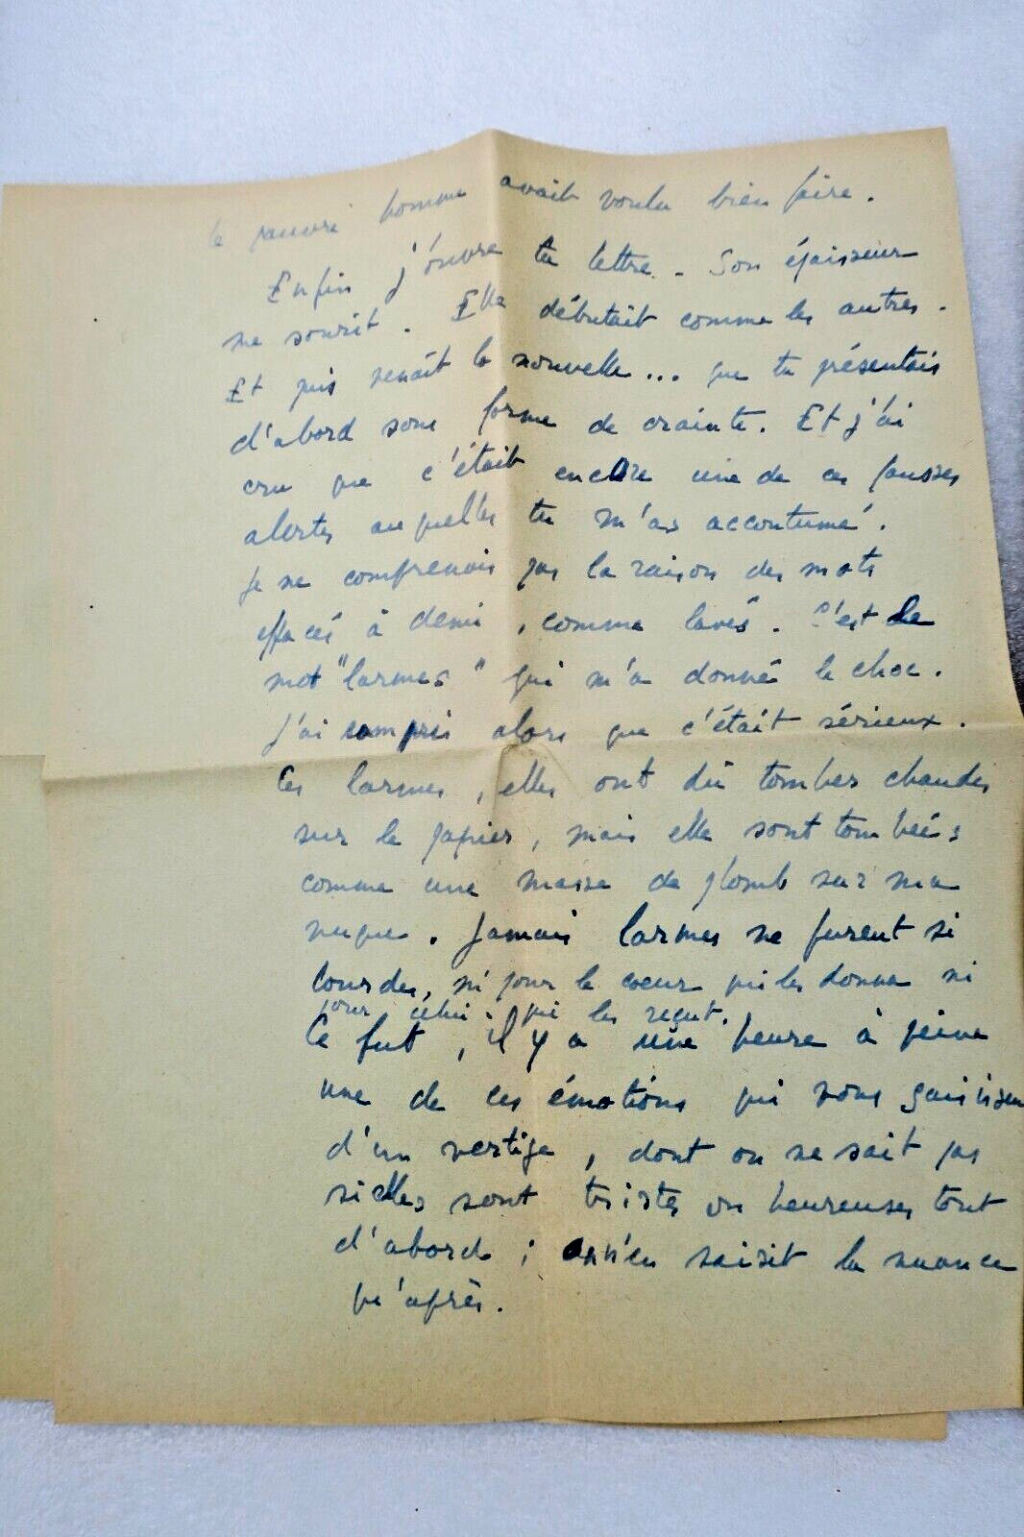 le pauvre homme avait voulu bien faire.
Enfin j'ouvre ta lettre. Son épaisseur
me sourit. Elle débutait comme les autres.
Et puis venait la nouvelle... que tu présentais
d'abord sous forme de crainte. Et j'ai
cru que c'était encore une de ces fausses
alertes auxquelles tu m'as accoutumé.
Je ne comprenais pas la raison des mots
effacés à demi, comme lavés. C'est le
mot "larmes" qui m'a donné le choc.
J'ai compris alors que c'était sérieux.
Ces larmes, elles ont dû tomber chaudes
sur le papier, mais elle sont tombées
comme une masse de plomb sur ma
nuque. Jamais larmes ne furent si
lourdes, ni pour le coeur qui les donna ni
pour celui qui les reçut.
Ce fut, il y a une heure à peine
une de ces émotions qui vous saisissen
d'un vertige, dont on ne sait pas
si elles sont tristes ou heureuses tout
d'abord ; on n'en saisit la nuance
qu'après.